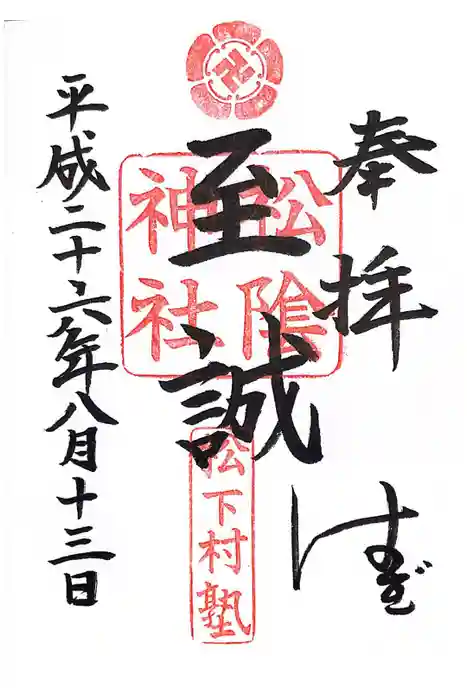 奉拝
至誠
松陰神社
松下村塾
平成二十六年八月十三日